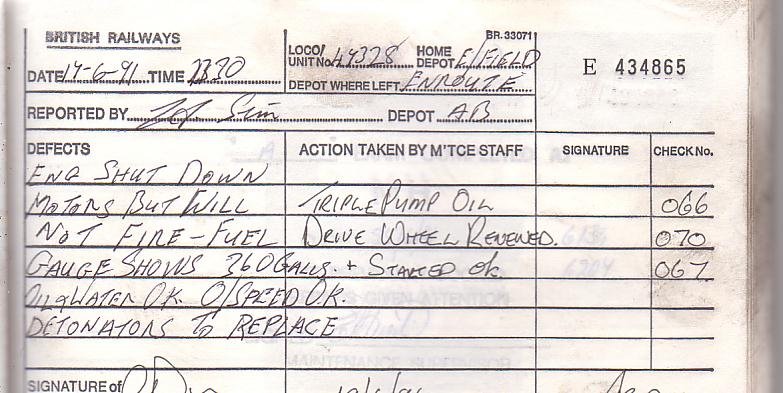 BRITISH RAILWAYS
BR. 33071
LOCO/UNIT No. 47328 HOME DEPOT E/FIELD
E 434865
DATE 17-6-91 TIME
DEPOT WHERE LEFT ENROUTE
REPORTED BY Sim DEPOT AB
DEFECTS ACTION TAKEN BY M'TCE STAFF SIGNATURE CHECK No.
ENG SHUT DOWN
MOTORS BUT WILL TRIPLE PUMP OIL 066
NOT FIRE-FUEL DRIVE WHEEL RENEWED. 070
GAUGE SHOWS 360 GALLS. + STARTED OK. 067
OIL & WATER OK. O/SPEED OK.
DETONATORS TO REPLACE
MAINTENANCE SUPERVISOR
SIGNATURE of